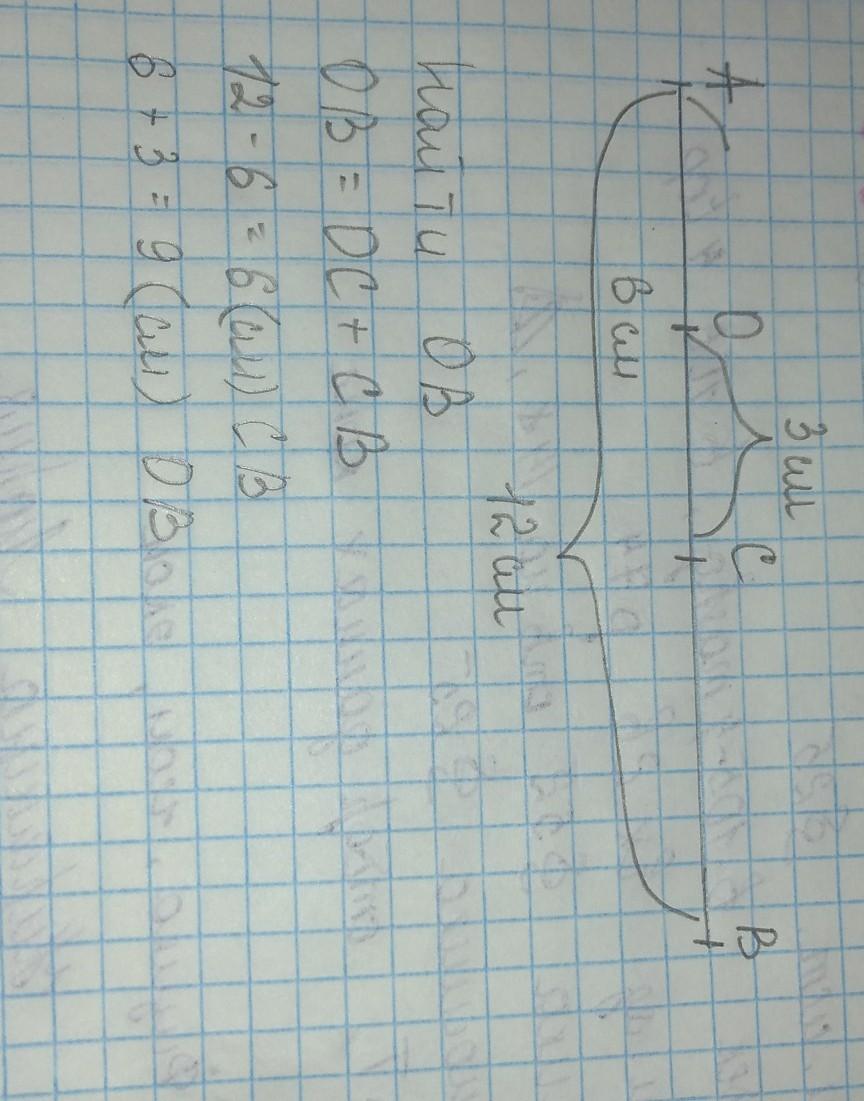 3 см
A D C B
6 см
12 см
Найти DB
DB = DC + CB
12 - 6 = 6 (см) CB
6 + 3 = 9 (см) DB